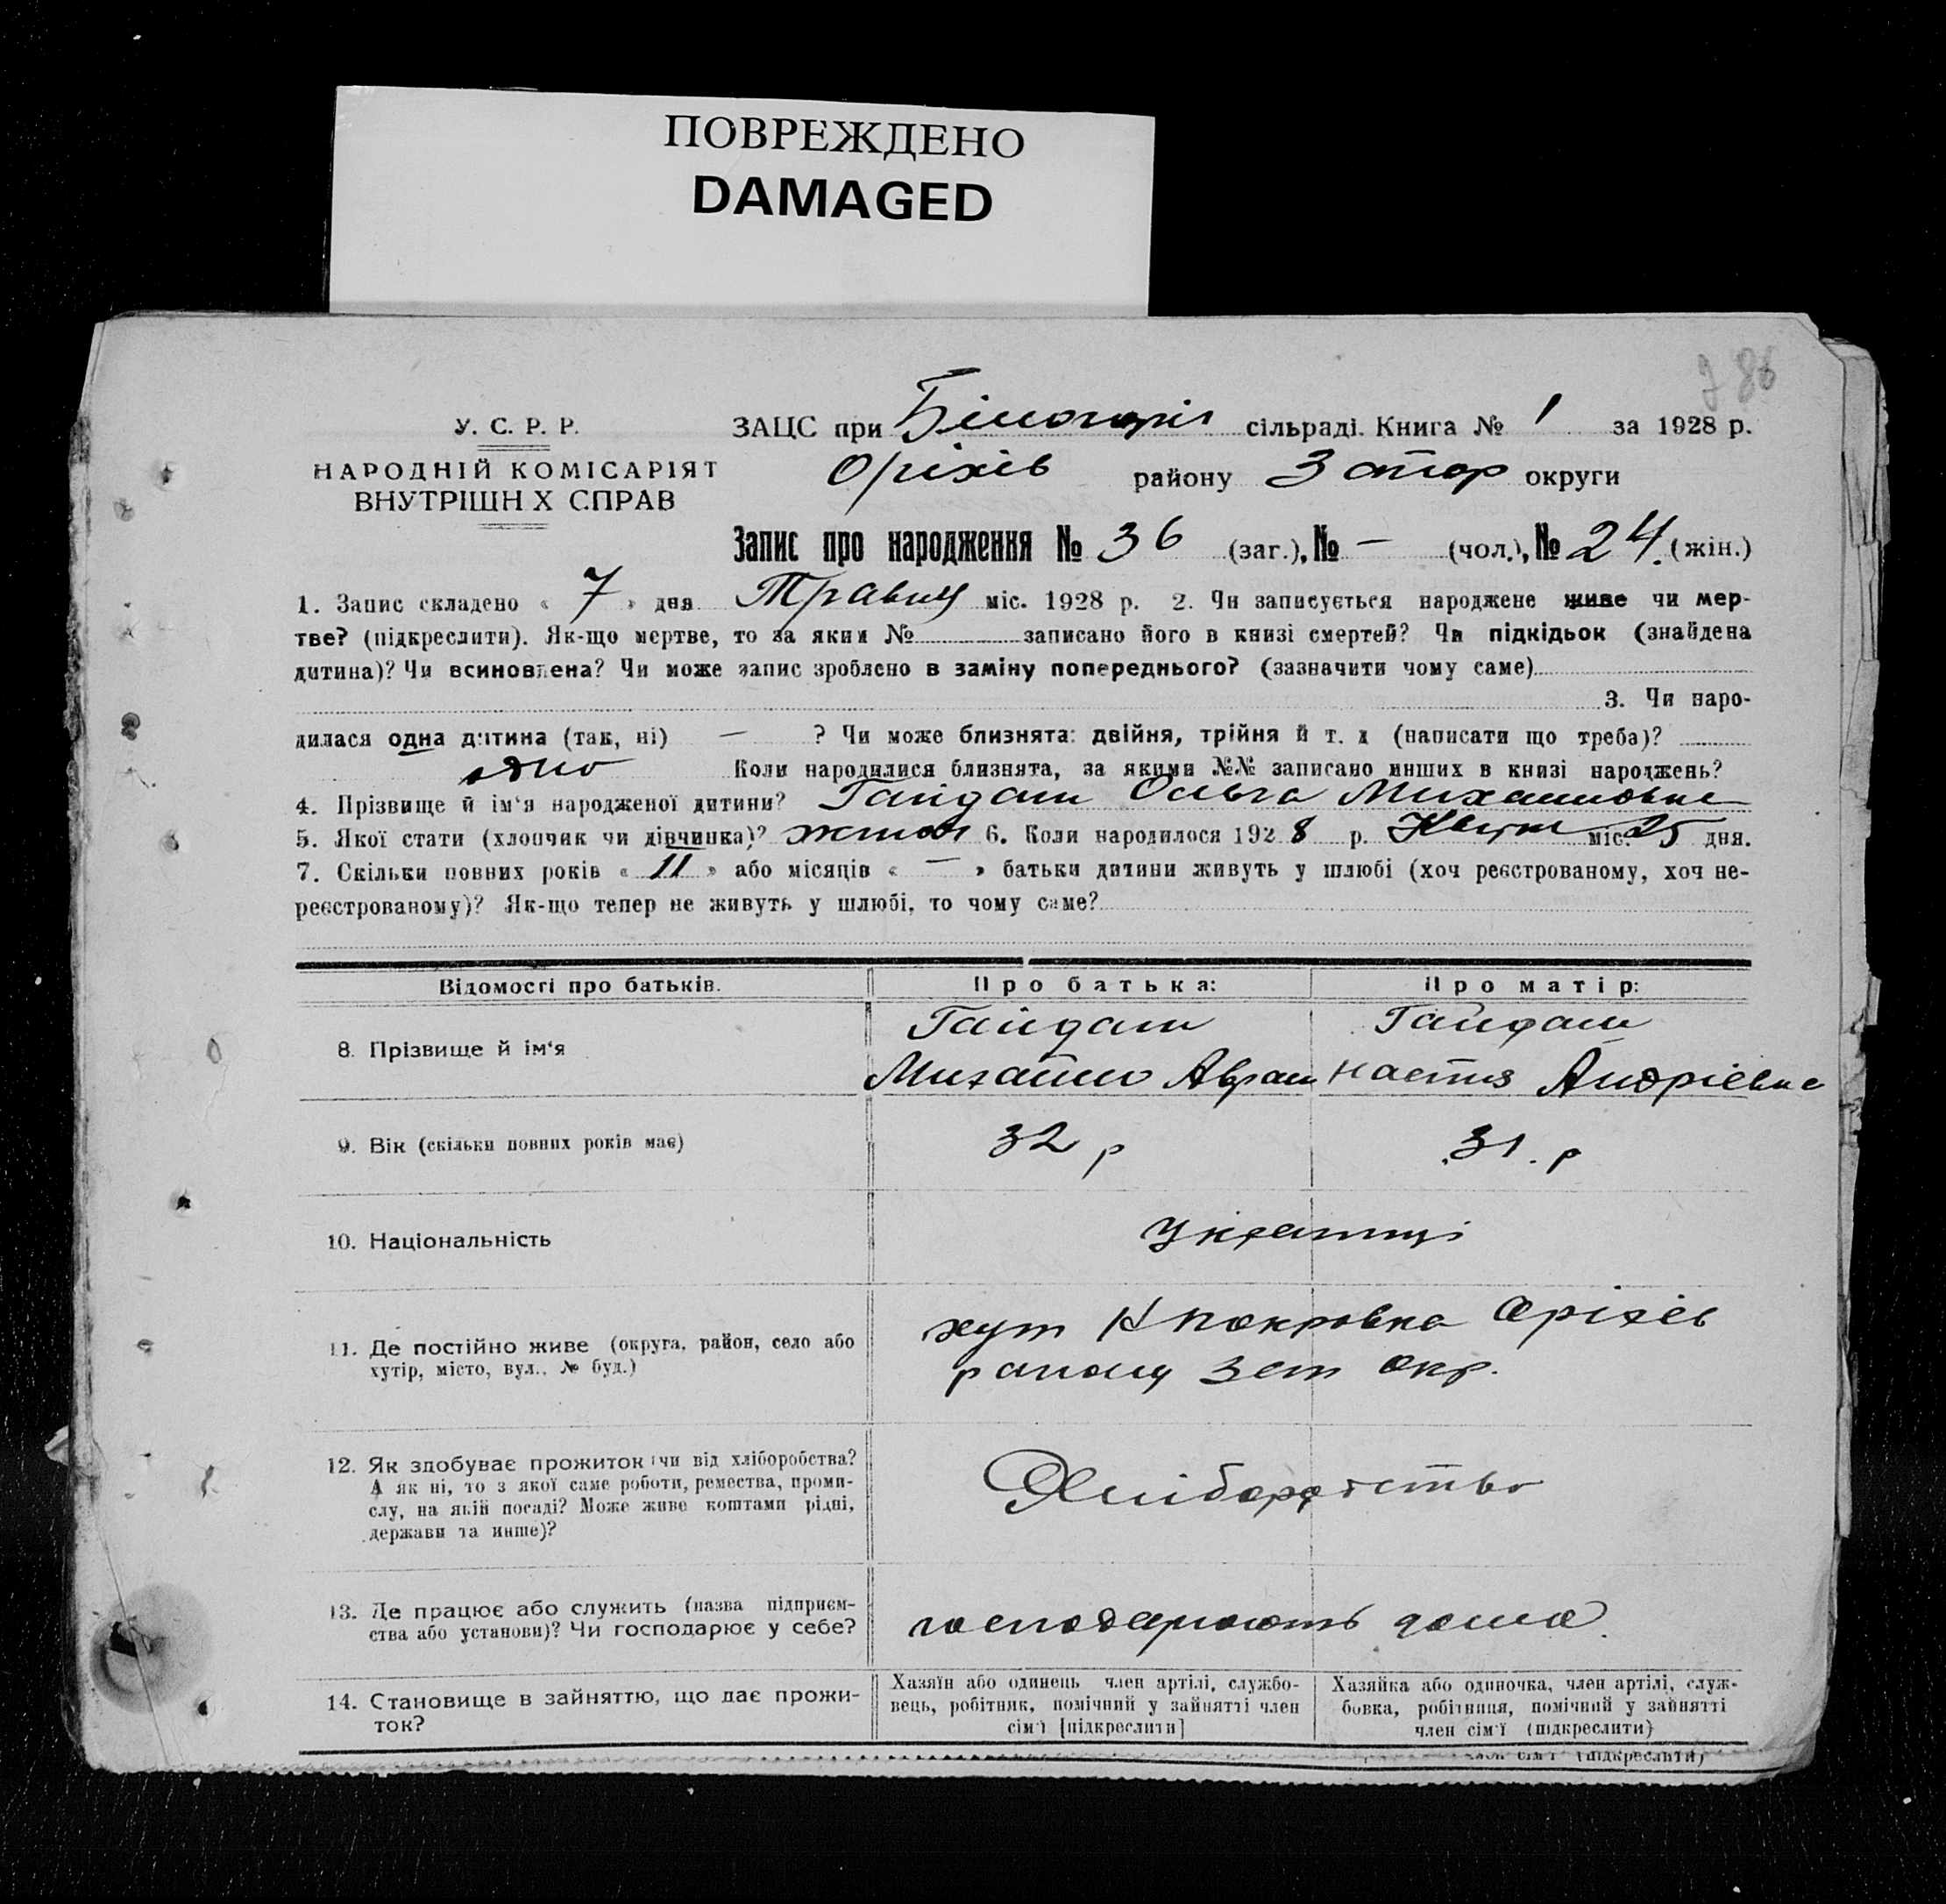 ПОВРЕЖДЕНО
DAMAGED
786
У. С. Р. Р.
НАРОДНІЙ КОМІСАРІЯТ
ВНУТРІШН Х СПРАВ
ЗАЦС при Білогоріл сільраді. Книга № 1 за 1928 р.
Оріхів району Запор округи
Запис про народження № 36 (заг.), № — (чол.), № 24. (жін.)
1. Запис складено « 7 » дня Травня міс. 1928 р. 2. Чи записується народжене живе чи мер-
тве? (підкреслити). Як-що мертве, то за яким № записано його в книзі смертей? Чи підкідьок (знайдена
дитина)? Чи всиновлена? Чи може запис зроблено в заміну попереднього? (зазначити чому саме)
3. Чи наро-
дилася одна дитина (так, ні) — ? Чи може близнята: двійня, трійня й т. д (написати що треба)?
одно Коли народилися близнята, за якими №№ записано инших в книзі народжень?
4. Прізвище й ім'я народженої дитини? Гайдаш Ольга Михайловна
5. Якої стати (хлопчик чи дівчинка)? жіноч 6. Коли народилося 1928 р. Квітн міс. 25 дня.
7. Скільки повних років « 11 » або місяців « — » батьки дитини живуть у шлюбі (хоч реєстрованому, хоч не-
реєстрованому)? Як-що тепер не живуть у шлюбі, то чому саме?
Відомості про батьків. Про батька: Про матір:
8. Прізвище й ім'я
Гайдаш Гайдаш
Михайло Аврам Настя Андрієвна
9. Вік (скільки повних років має) 32 р 31. р
10. Національність Українці
11. Де постійно живе (округа, район, село або
хутір, місто, вул., № буд.)
хут Н Покровка Оріхів
району Зап окр.
12. Як здобуває прожиток (чи від хліборобства?
А як ні, то з якої саме роботи, ремества, проми-
слу, на якій посаді? Може живе коштами рідні,
держави та инше)?
Хліборобство
13. Де працює або служить (назва підприєм-
ства або установи)? Чи господарює у себе?
господарюють дома.
14. Становище в зайняттю, що дає прожи-
ток?
Хазяїн або одинець член артілі, службо-
вець, робітник, помічний у зайнятті член
сім'ї [підкреслити]
Хазяйка або одиночка, член артілі, служ-
бовка, робітниця, помічний у зайнятті
член сім'ї (підкреслити)
член сім'ї (підкреслити)